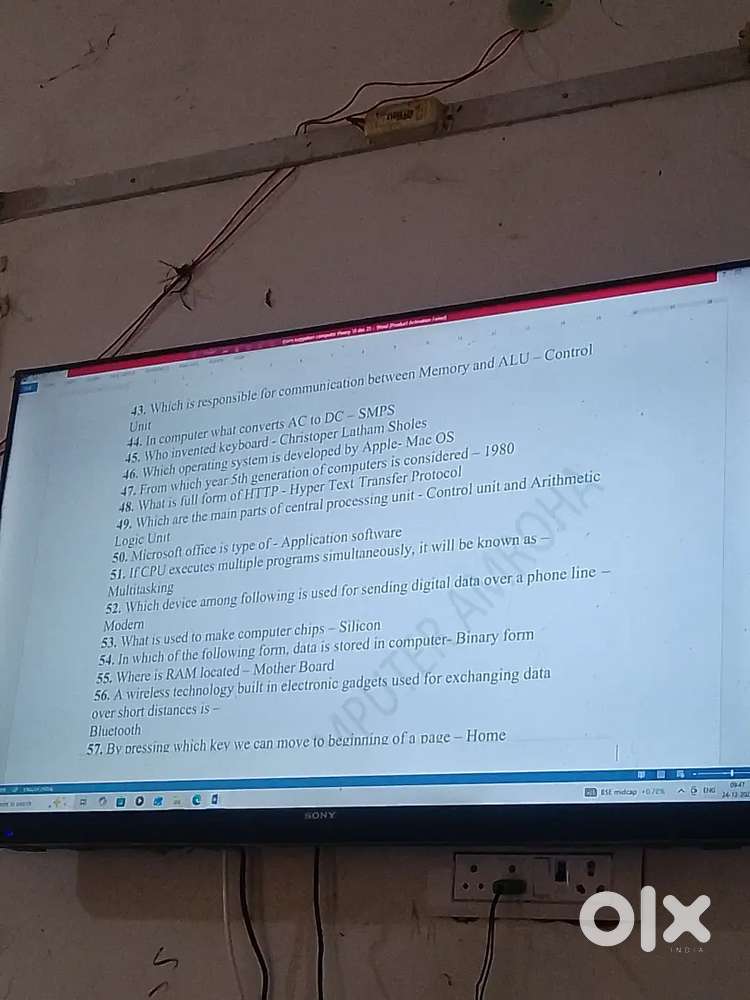 43. Which is responsible for communication between Memory and ALU – Control
Unit
44. In computer what converts AC to DC – SMPS
45. Who invented keyboard - Christoper Latham Sholes
46. Which operating system is developed by Apple- Mac OS
47. From which year 5th generation of computers is considered – 1980
48. What is full form of HTTP - Hyper Text Transfer Protocol
49. Which are the main parts of central processing unit - Control unit and Arithmetic
Logic Unit
50. Microsoft office is type of - Application software
51. If CPU executes multiple programs simultaneously, it will be known as –
Multitasking
52. Which device among following is used for sending digital data over a phone line –
Modern
53. What is used to make computer chips – Silicon
54. In which of the following form, data is stored in computer- Binary form
55. Where is RAM located – Mother Board
56. A wireless technology built in electronic gadgets used for exchanging data
over short distances is –
Bluetooth
57. By pressing which key we can move to beginning of a page – Home
MPUTER AMROHA
BSE midcap +0.70%
ENG
09:47
SONY
olx
INDIA